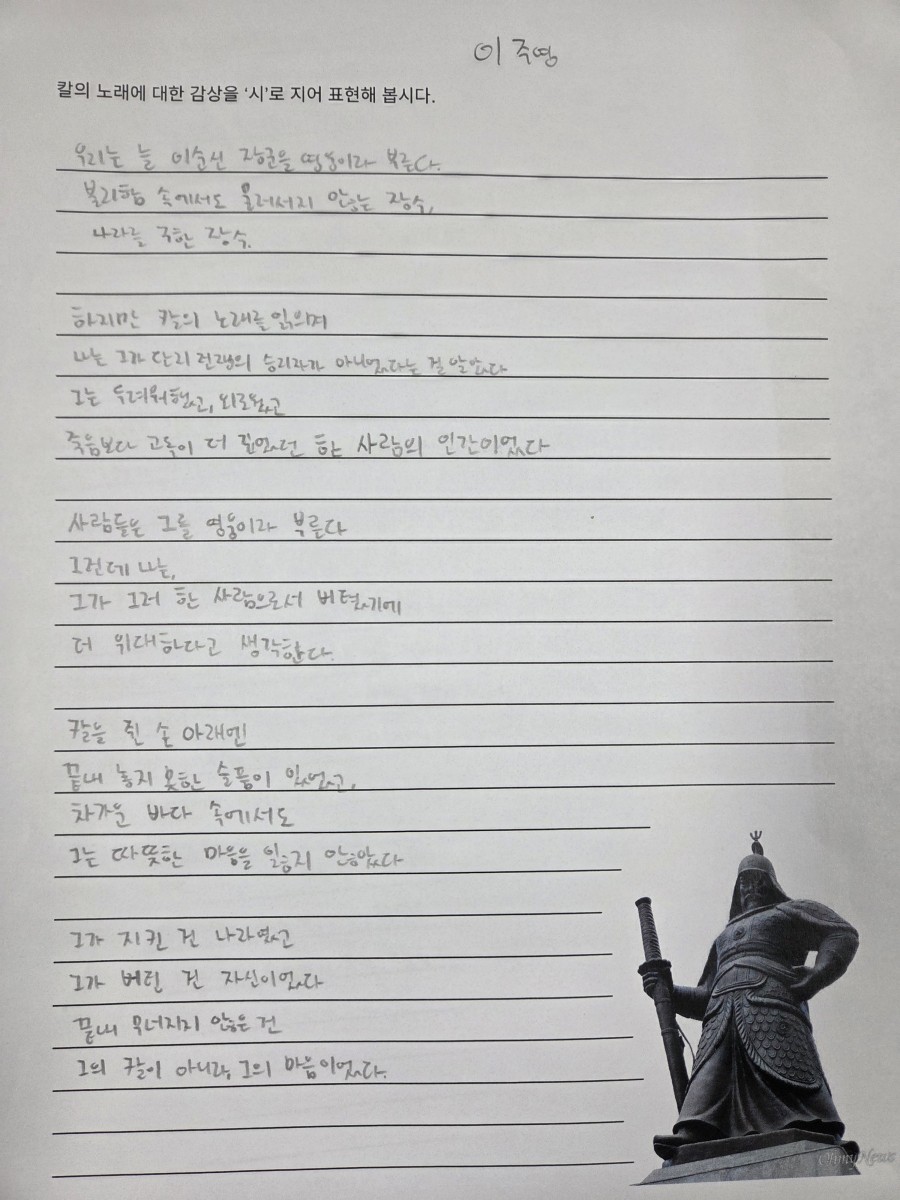 이주영
칼의 노래에 대한 감상을 ‘시’로 지어 표현해 봅시다.
우리는 늘 이순신 장군을 영웅이라 부른다.
불리함 속에서도 물러서지 않는 장수,
나라를 구한 장수.
하지만 칼의 노래를 읽으며
나는 그가 단지 전쟁의 승리자가 아니었다는 걸 알았다
그는 두려워했고, 외로웠고
죽음보다 고독이 더 깊었던 한 사람의 인간이었다
사람들은 그를 영웅이라 부른다
그런데 나는,
그가 그저 한 사람으로서 버텼기에
더 위대하다고 생각한다.
칼을 쥔 손 아래엔
끝내 놓지 못한 슬픔이 있었고,
차가운 바다 속에서도
그는 따뜻한 마음을 잃지 않았다
그가 지킨 건 나라였고
그가 버틴 건 자신이었다
끝내 무너지지 않은 건
그의 칼이 아니라, 그의 마음이었다.
OhmyNews